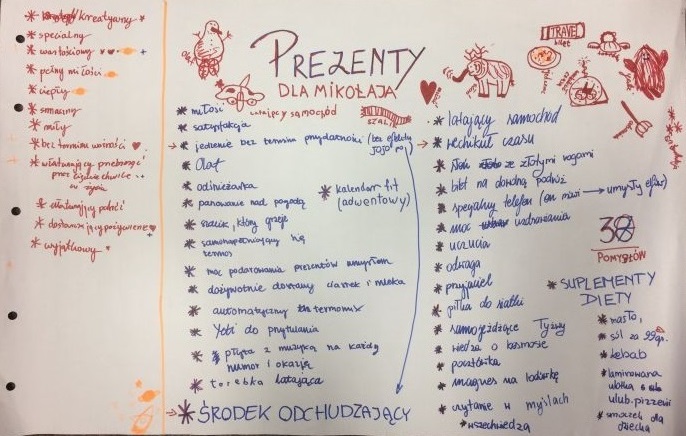 kreatywny
specjalny
wartościowy
pełny miłości
ciepły
smaczny
miły
bez terminu ważności
przez ciężkie chwile
w życiu
wyjątkowy
PREZENTY
DLA MIKOŁAJA
latający samochód
SZALIK
TRAVEL
bilet
miłość
satysfakcja
jedzenie bez terminu przydatności (bez efektu
jojo)
Olaf
odśnieżarka
panowanie nad pogodą
szalik, który grzeje
samonapełniający się
termos
moc podarowania prezentów umysłem
dożywotnie dostawy ciastek i mleka
automatyczny termomix
Yeti do przytulania
płyta z muzyką na każdy
humor i okazję
torebka latająca
ŚRODEK ODCHUDZAJĄCY
kalendarz fit
(adwentowy)
latający samochód
wehikuł czasu
ze złotymi rogami
bilet na dowolną podróż
specjalny telefon (on musi → umyty efez)
moc uzdrawiania
uczucia
odwaga
przyjaciel
piłka do siatki
samojeżdżące łyżwy
wiedza o kosmosie
pocztówka
magnes na lodówkę
czytanie w myślach
wszechwiedza
38
POMYSŁÓW
SUPLEMENTY
DIETY
masło,
sól za 99gr.
kebab
laminowana
ulotka
ulub. pizzerii
smoczek dla
dziecka